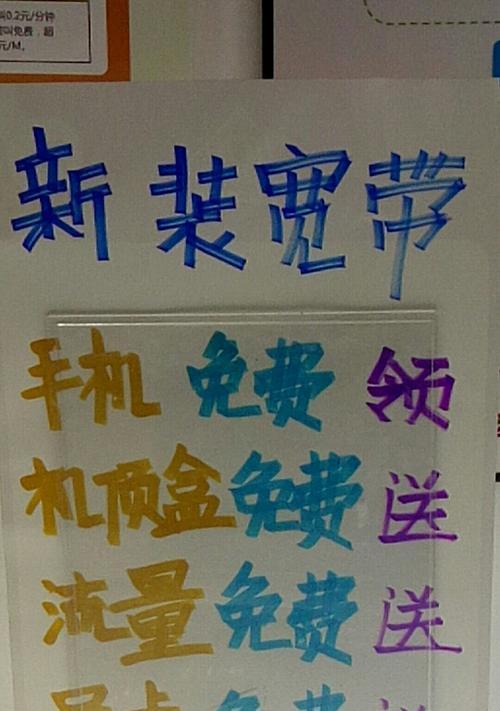 0.2元/分钟
叫免费，超
元/M。
新装宽带
手机免费领
机顶盒免费送
流量免费送